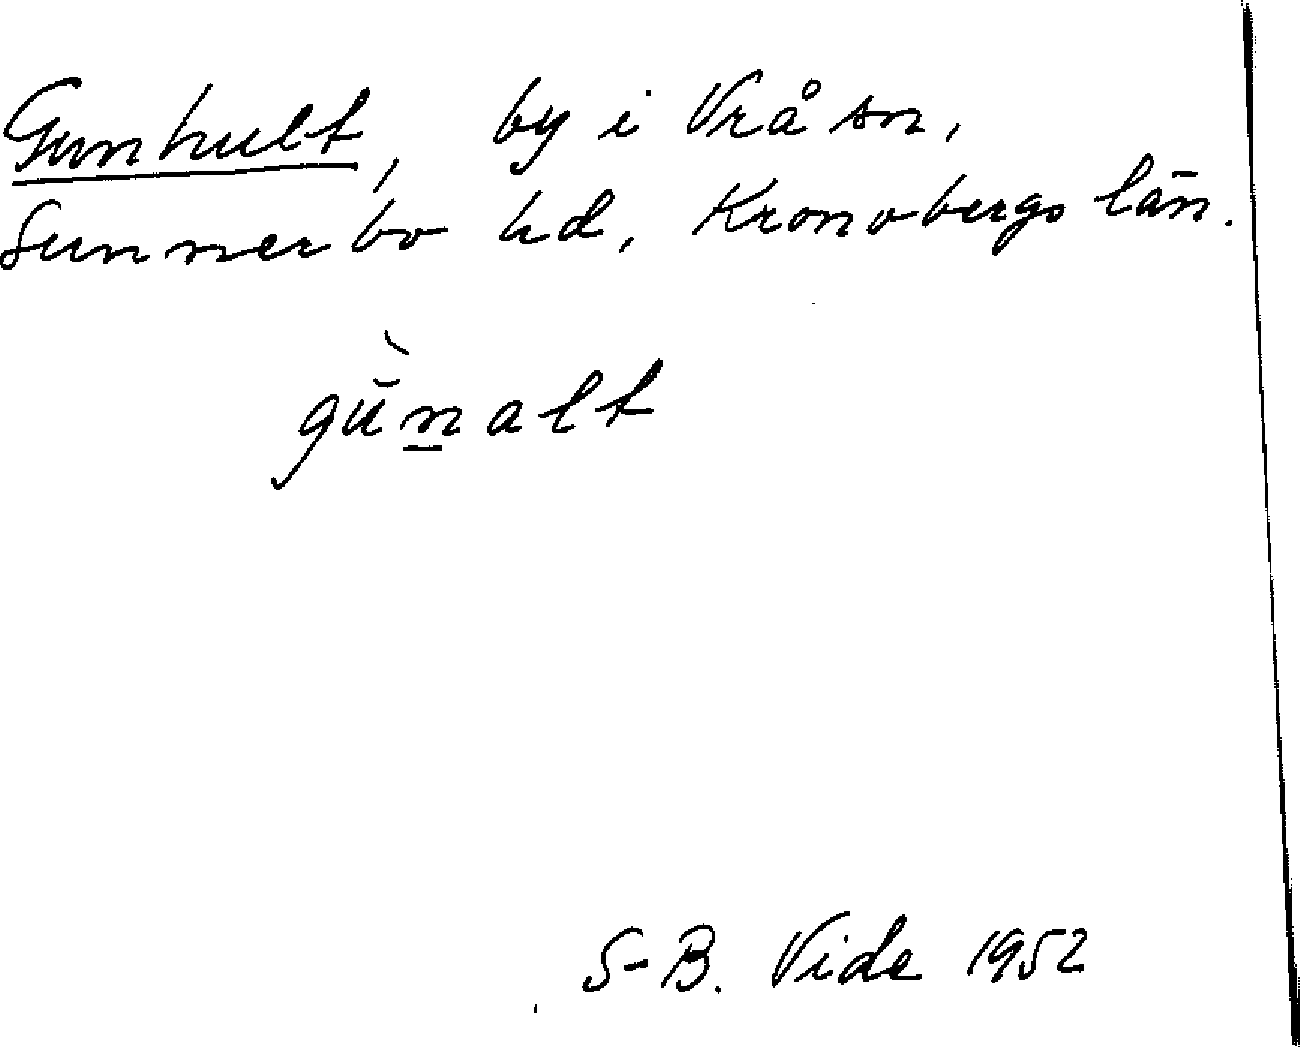 Gunhult, by i Vrå sn,
Sunnerbo hd, Kronobergs län.
gù̆n̲alt
S-B. Vide 1952